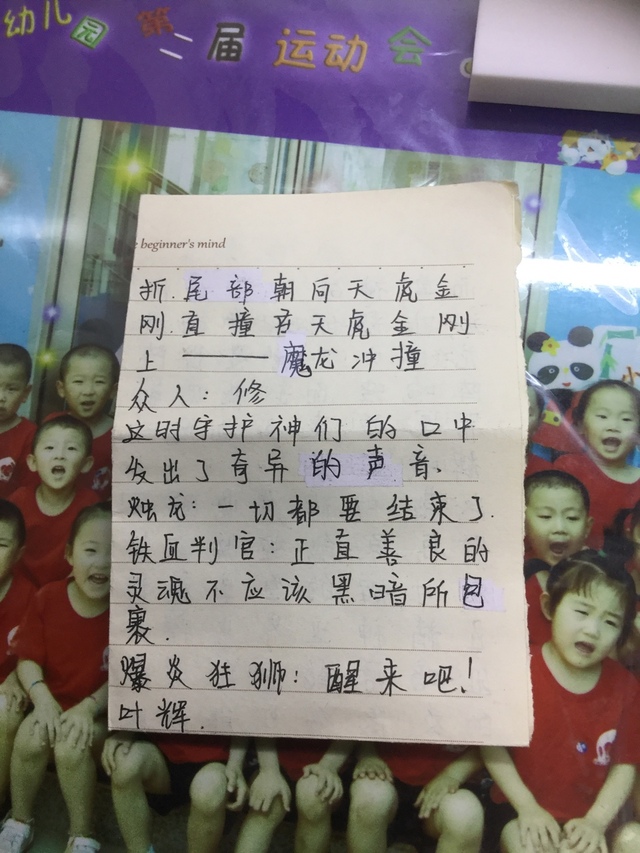 幼儿园 第二届运动会
beginner's mind
折.尾部朝向天虎金
刚.直撞在天虎金刚
上 ——— 魔龙冲撞
众人：修
这时守护神们的口中
发出了奇异的声音.
烛龙：一切都要结束了.
铁血判官：正直善良的
灵魂不应该黑暗所包
裹.
爆炎狂狮：醒来吧！
叶辉.